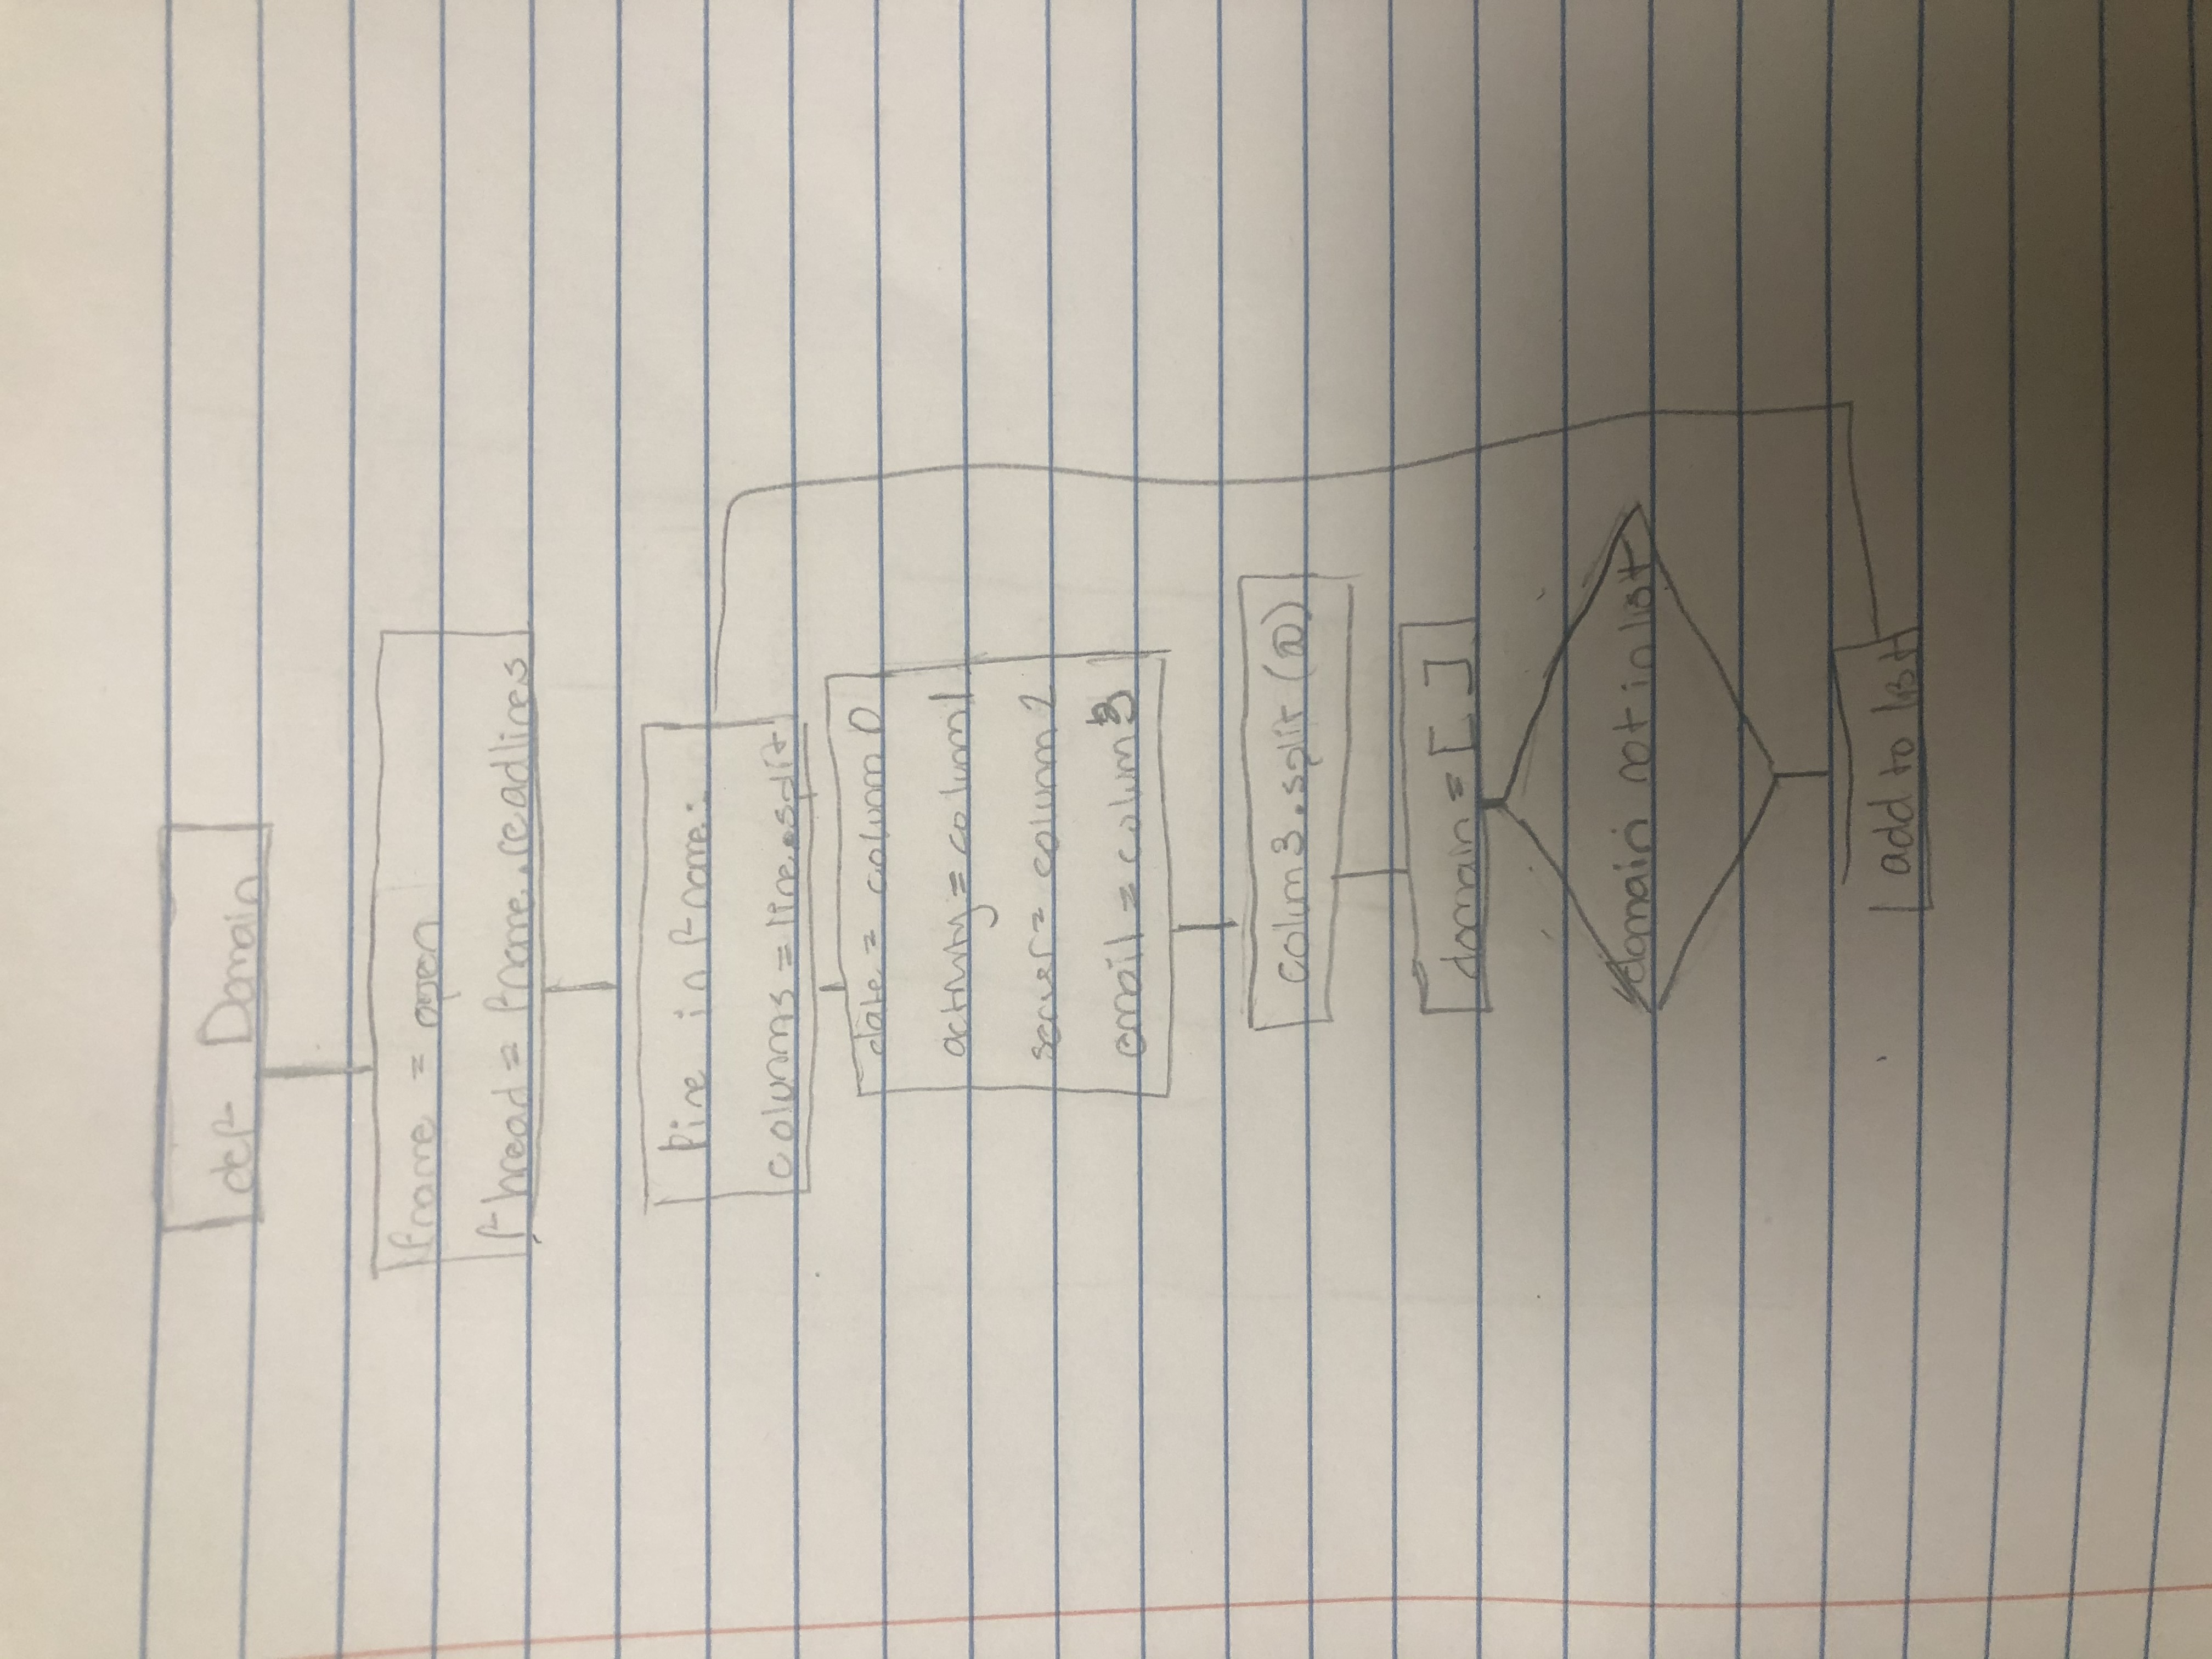 def Domain
fname = open
fhread = fname.readlines
line in fname:
colunms = line.split
date = colunm 0
activity = colunm 1
server = colunm 2
email = colum 3
colum 3.split (@)
domain = [ ]
domain not in list
add to list